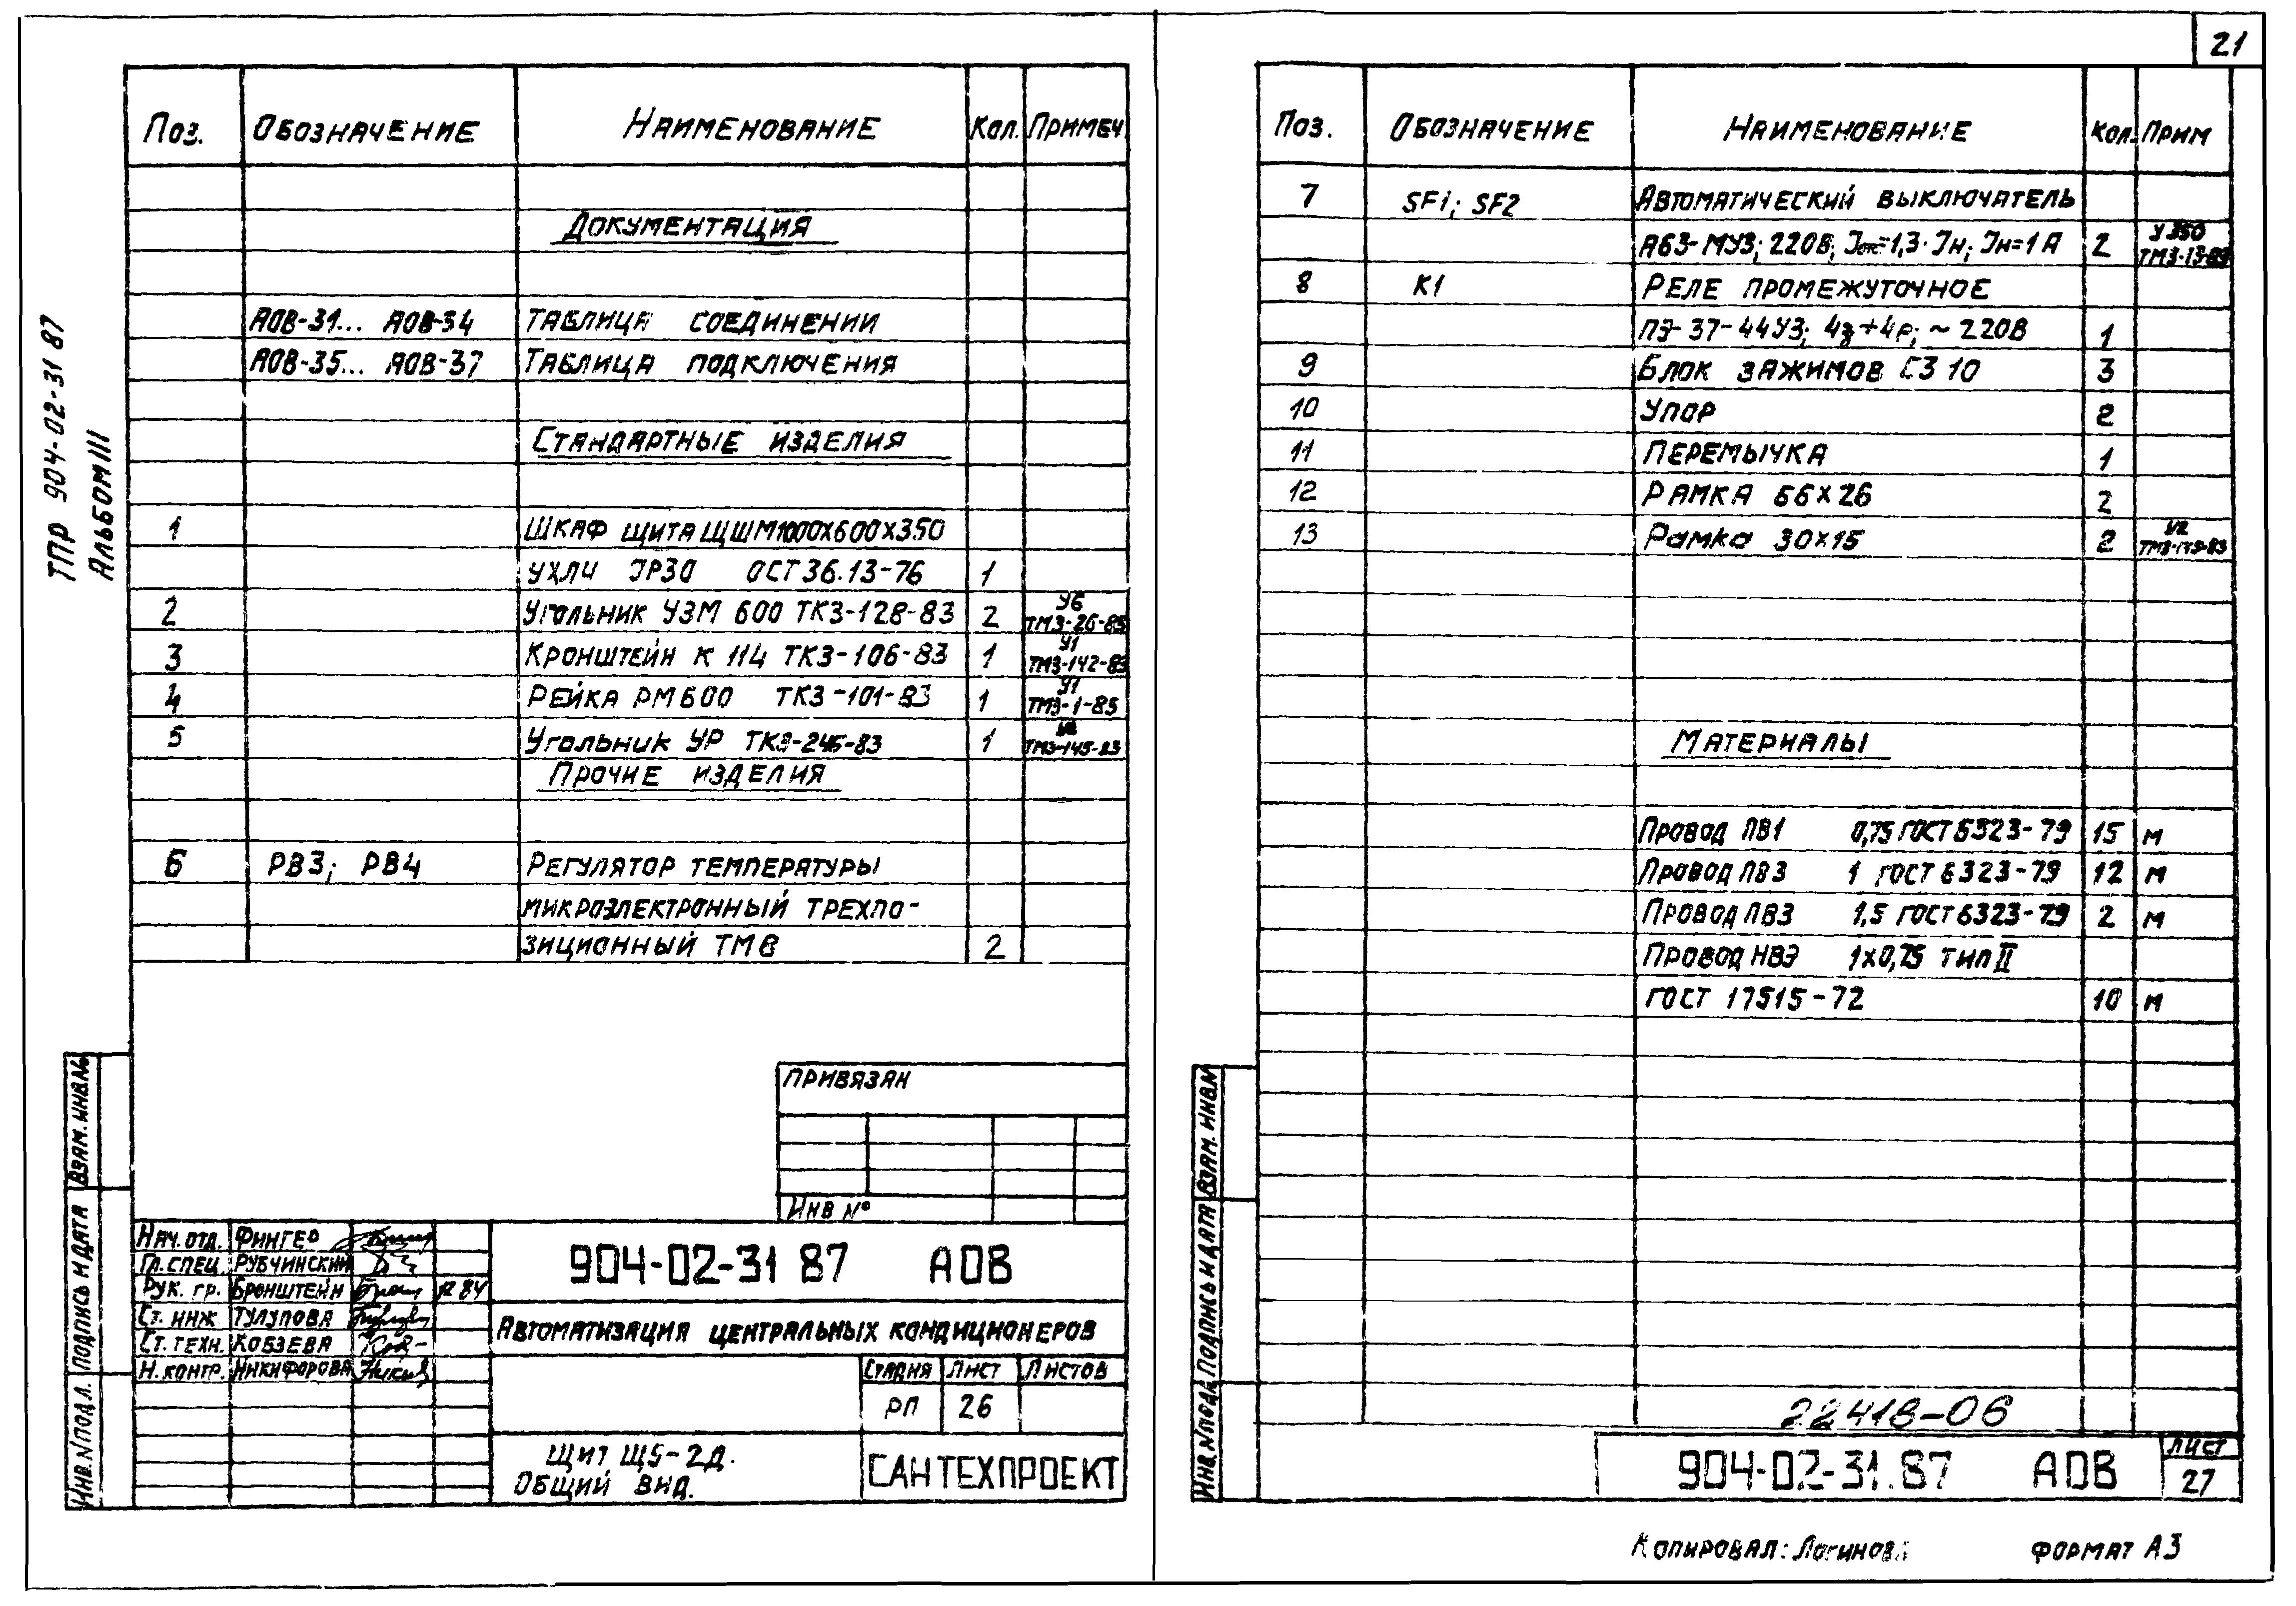 21
ТПР 904-02-31 87
Альбом III
Поз. Обозначение Наименование Кол. Примеч
Документация
АОВ-31... АОВ-34 Таблица соединений
АОВ-35... АОВ-37 Таблица подключения
Стандартные изделия
1 Шкаф щита ЩШМ 1000х600х350
УХЛ4 IP30 ОСТ 36.13-76 1
2 Угольник УЗМ 600 ТК3-128-83 2 У6 ТМ3-26-85
3 Кронштейн К 114 ТК3-106-83 1 У1 ТМ3-142-83
4 Рейка РМ600 ТК3-101-83 1 У1 ТМ3-1-85
5 Угольник УР ТК3-246-83 1 ТМ3-145-83
Прочие изделия
6 РВ3; РВ4 Регулятор температуры
микроэлектронный трехпо-
зиционный ТМ8 2
Привязан
Инв №
Нач. отд. Фингер
Гл. спец. Рубчинский
Рук. гр. Бронштейн
Ст. инж Тулупова
Ст. техн. Кобзева
Н. контр. Никифорова
904-02-31 87 АОВ
Автоматизация центральных кондиционеров
Стадия Лист Листов
РП 26
Щит Щ5-2Д.
Общий вид.
САНТЕХПРОЕКТ
Взам. инв.№
Подпись и дата
Инв.№ подл.
Поз. Обозначение Наименование Кол. Прим
7 SF1; SF2 Автоматический выключатель
А63-МУ3; 220В; Iотс=1,3·Iн; Iн=1А 2 У350 ТМ3-13-83
8 К1 Реле промежуточное
ПЭ-37-44У3; 4з+4р; ~220В 1
9 Блок зажимов БЗ 10 3
10 Упор 2
11 Перемычка 1
12 Рамка 66х26 2
13 Рамка 30х15 2 У2 ТМ3-145-83
Материалы
Провод ПВ1 0,75 ГОСТ 6323-79 15 м
Провод ПВ3 1 ГОСТ 6323-79 12 м
Провод ПВ3 1,5 ГОСТ 6323-79 2 м
Провод НВЭ 1х0,75 тип II
ГОСТ 17515-72 10 м
Взам. инв.№
Подпись и дата
Инв.№ подл.
22418-06
904-02-31.87 АОВ
Лист
27
Копировал: Логинова
Формат А3